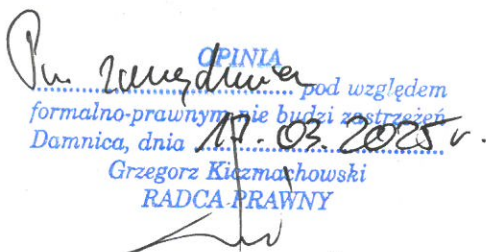 OPINIA
Pr. zarządzenia pod względem
formalno-prawnym nie budzi zastrzeżeń
Damnica, dnia 17.03.2025 r.
Grzegorz Kiczmachowski
RADCA PRAWNY